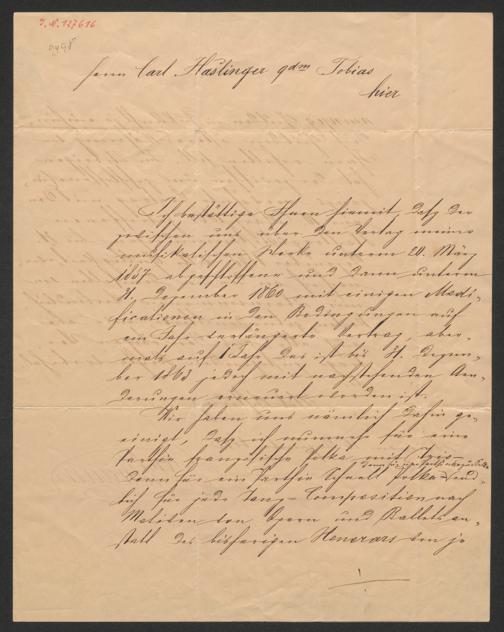 I. N. 127616
Herrn Carl Haslinger qdm Tobias
hier
Ich bestättige Ihnen hiermit, daß der
zwischen uns über den Verlag meiner
musikalischen Werke unterm 20. März
1857 abgeschlossene und dann unterm
31. Dezember 1860 mit einigen Modi-
ficationen in den Bedingungen auf
ein Jahr verlängerte Vertrag, aber-
mals auf 1 Jahr das ist bis 31. Dezem-
ber 1863 jedoch mit nachstehenden Aen-
derungen erneuert worden ist.
Wir haben uns nämlich dahin ge-
einigt, daß ich nunmehr für eine
Parthie französische Polka mit Trio
Dann für eine Parthie Schnell Polka end-
lich für jede Tanz-Composition nach
Motiven von Opern und Ballets an-
statt des bisherigen Honorars von je